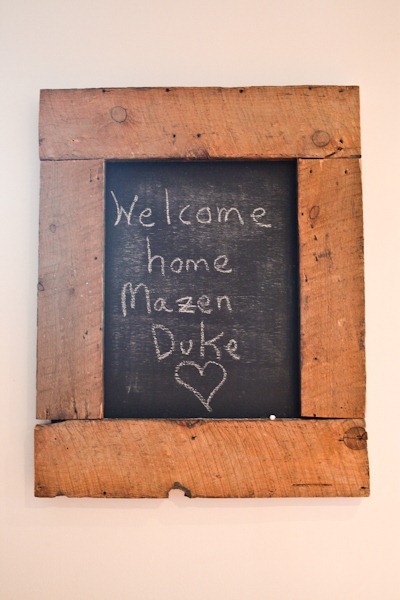 Welcome
home
Mazen
Duke